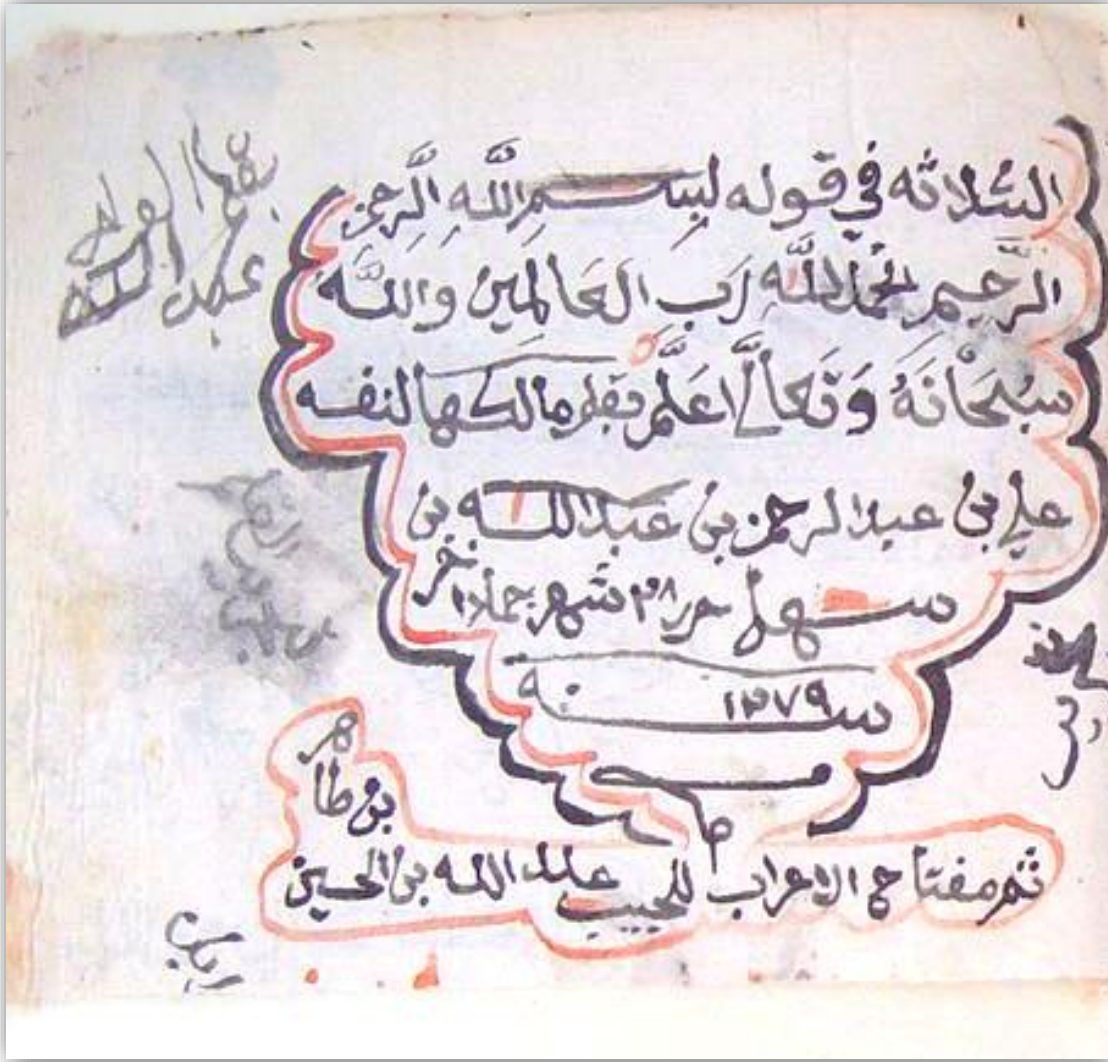 الثلاثه في قوله لبسم الله الرحمن
الرَّحِيم الحمد لله رَب العَالمِين وَاللَّه
سُبْحَانَهُ وَتَعَالَى اعلم بقلم مالكها لنفسه
علي بن عبد الرحمن بن عبد الله بن
سهل حرر ٢٨ شهر جماد اخر
سنه ١٢٧٩
تم مفتاح الاعراب للحبيب عبد الله بن الحسين
بن طاهر
بقلم
عبد الله